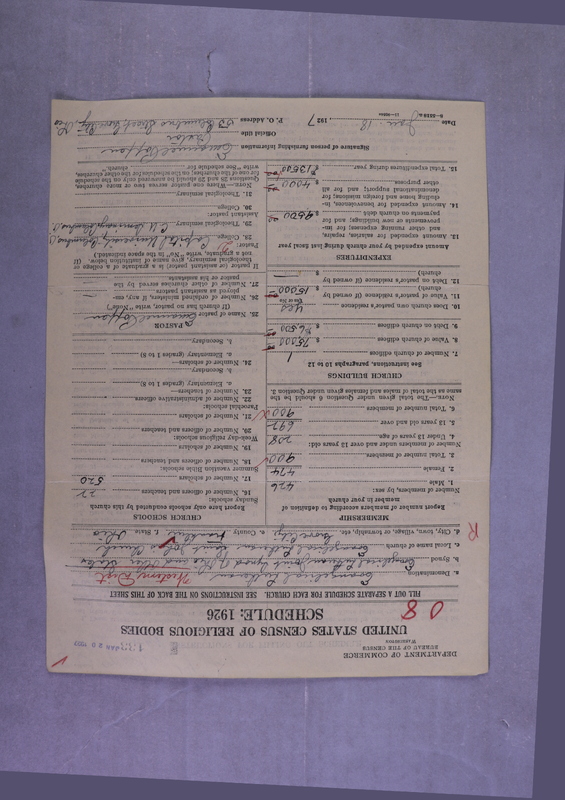 DEPARTMENT OF COMMERCE
BUREAU OF THE CENSUS
WASHINGTON
UNITED STATES CENSUS OF RELIGIOUS BODIES
SCHEDULE: 1926
08
FILL OUT A SEPARATE SCHEDULE FOR EACH CHURCH. SEE INSTRUCTIONS ON THE BACK OF THIS SHEET
a. Denomination Evangelical Lutheran Western Dist
b. Synod Evangelical Lutheran Joint Synod of Ohio and Other States
c. Local name of church Evangelical Lutheran Saint John Church
d. City, town, village, or township, etc. Grove City e. County Franklin State f. Ohio
R
MEMBERSHIP
Report number of members according to definition of member in your church
Number of members, by sex:
1. Male 426
2. Female 474
3. Total members 900
Number of members under and over 13 years old:
4. Under 13 years of age 208
5. 13 years old and over 692
6. Total number of members 900
NOTE.—The total given under Question 6 should be the same as the total of males and females given under Question 3.
CHURCH BUILDINGS
See instructions, paragraphs 10 to 12
7. Number of church edifices 1
8. Value of church edifices $ 75000
9. Debt on church edifices $ 6500
10. Does church own pastor's residence yes
(Yes or No)
11. Value of pastor's residence (if owned by church) $ 15000
12. Debt on pastor's residence (if owned by church) $ —
EXPENDITURES
Amount expended by your church during last fiscal year
13. Amount expended for salaries, repairs, and other running expenses; for improvements or new buildings; and for payments on church debt $ 9500
14. Amount expended for benevolences, including home and foreign missions; for denominational support; and for all other purposes $ 4000
15. Total expenditures during year $ 13500
CHURCH SCHOOLS
Report here only schools conducted by this church
Sunday schools:
16. Number of officers and teachers 22
17. Number of scholars 520
Summer vacation Bible schools:
18. Number of officers and teachers
19. Number of scholars
Week-day religious schools:
20. Number of officers and teachers
21. Number of scholars
Parochial schools:
22. Number of administrative officers
23. Number of teachers—
a. Elementary (grades 1 to 8)
b. Secondary
24. Number of scholars—
a. Elementary (grades 1 to 8)
b. Secondary
PASTOR
25. Name of pastor Emanuel Poppen
(If church has no pastor, write "None")
26. Number of ordained ministers, if any, employed as assistant pastors
27. Number of other churches served by the pastor or his assistants
If pastor (or assistant pastor) is a graduate of a college or theological seminary, give name of institution below. (If not a graduate, write "No" in the space indicated.)
Pastor:
28. College Capital University, Columbus O
29. Theological seminary
Assistant pastor:
30. College
31. Theological seminary
NOTE.—When one pastor serves two or more churches, Questions 28 and 29 should be answered only on the schedule for one of the churches; on the schedules for the other churches, write "See schedule for church."
Signature of person furnishing information Emanuel Poppen
Official title Pastor
Date Jan 18, 1927 P. O. Address 53 Columbus Street, Grove City, Ohio